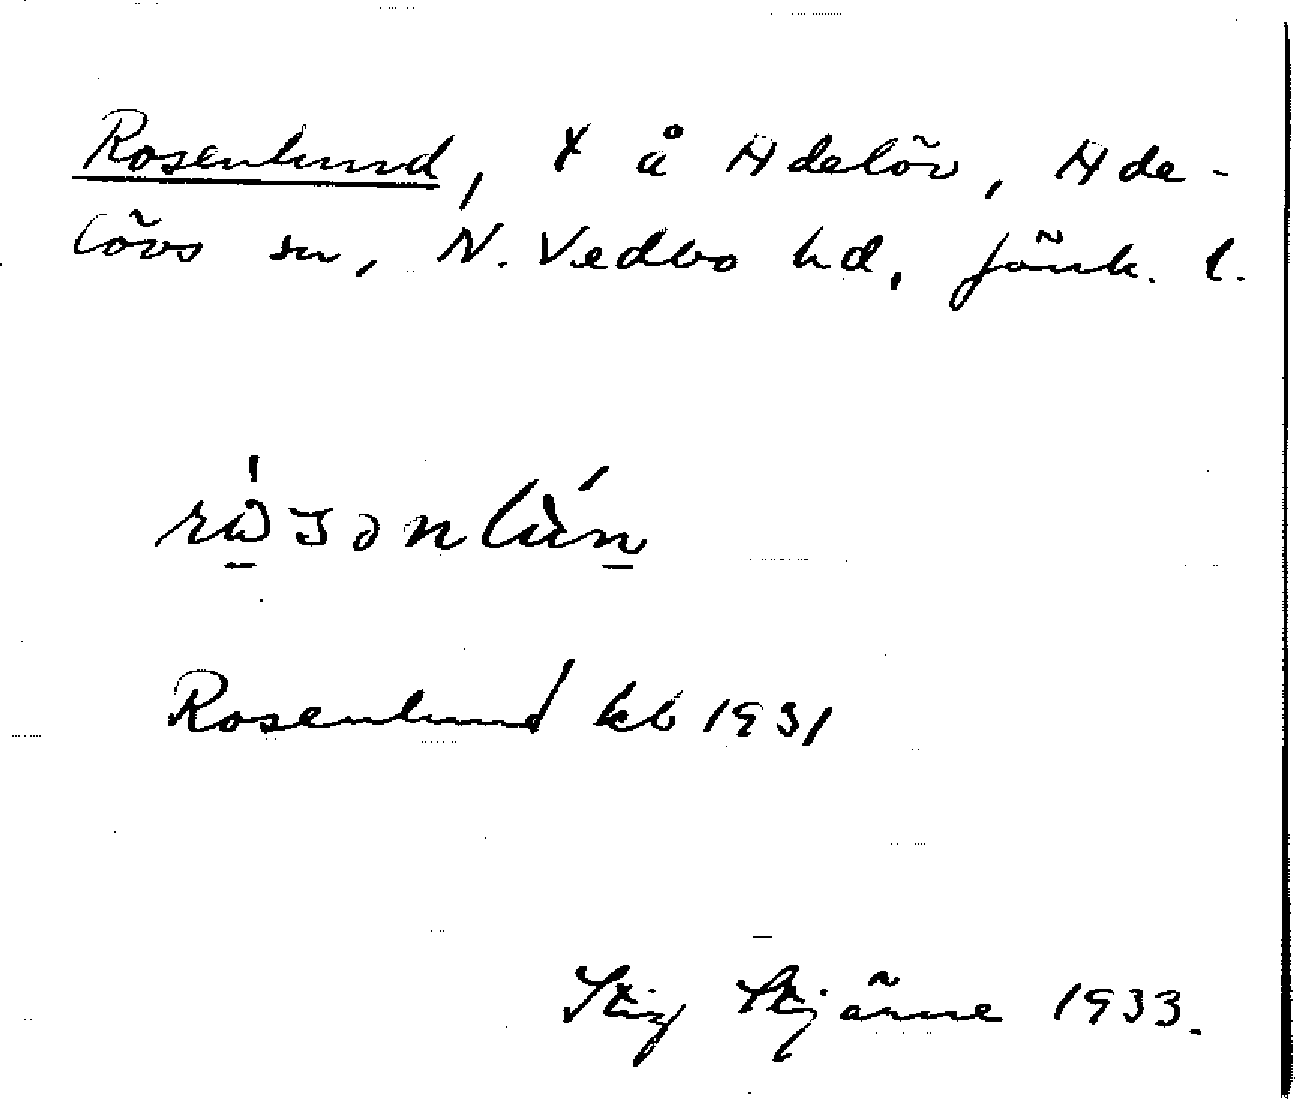 Rosenlund, x å Adelöv, Ade-
lövs sn, N. Vedbo hd, Jönk. l.
Rosenlund kb 1931
Stig Stjärne 1933.